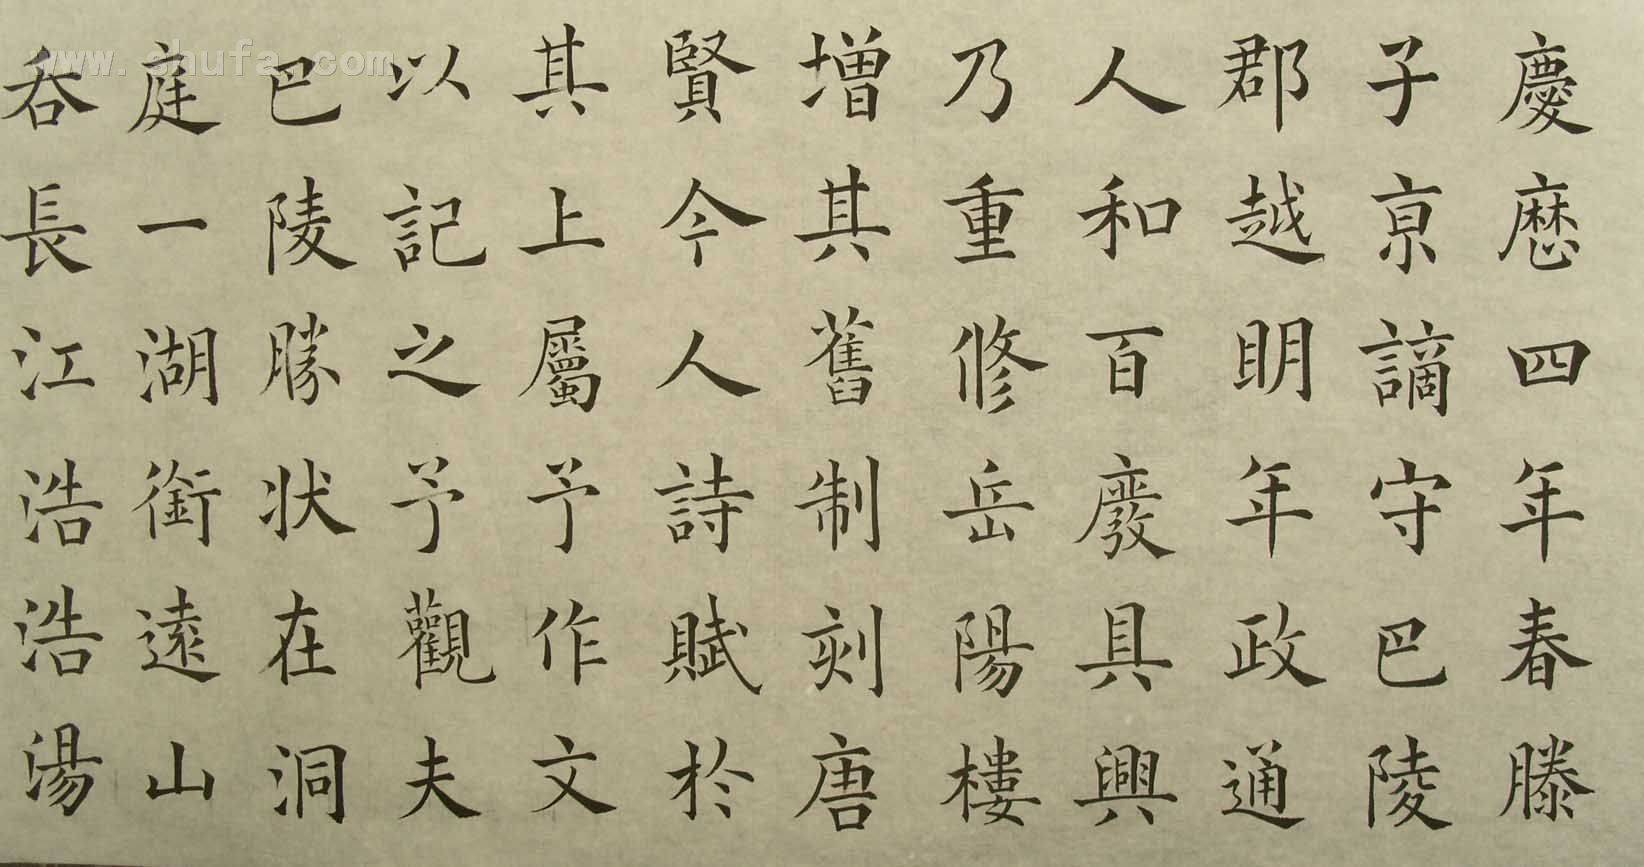 慶厯四年春滕
子亰謫守巴陵
郡越明年政通
人和百廢具興
乃重修岳陽樓
增其舊制刻唐
賢今人詩賦於
其上屬予作文
以記之予觀夫
巴陵勝状在洞
庭一湖銜遠山
吞長江浩浩湯
www.shufa.com